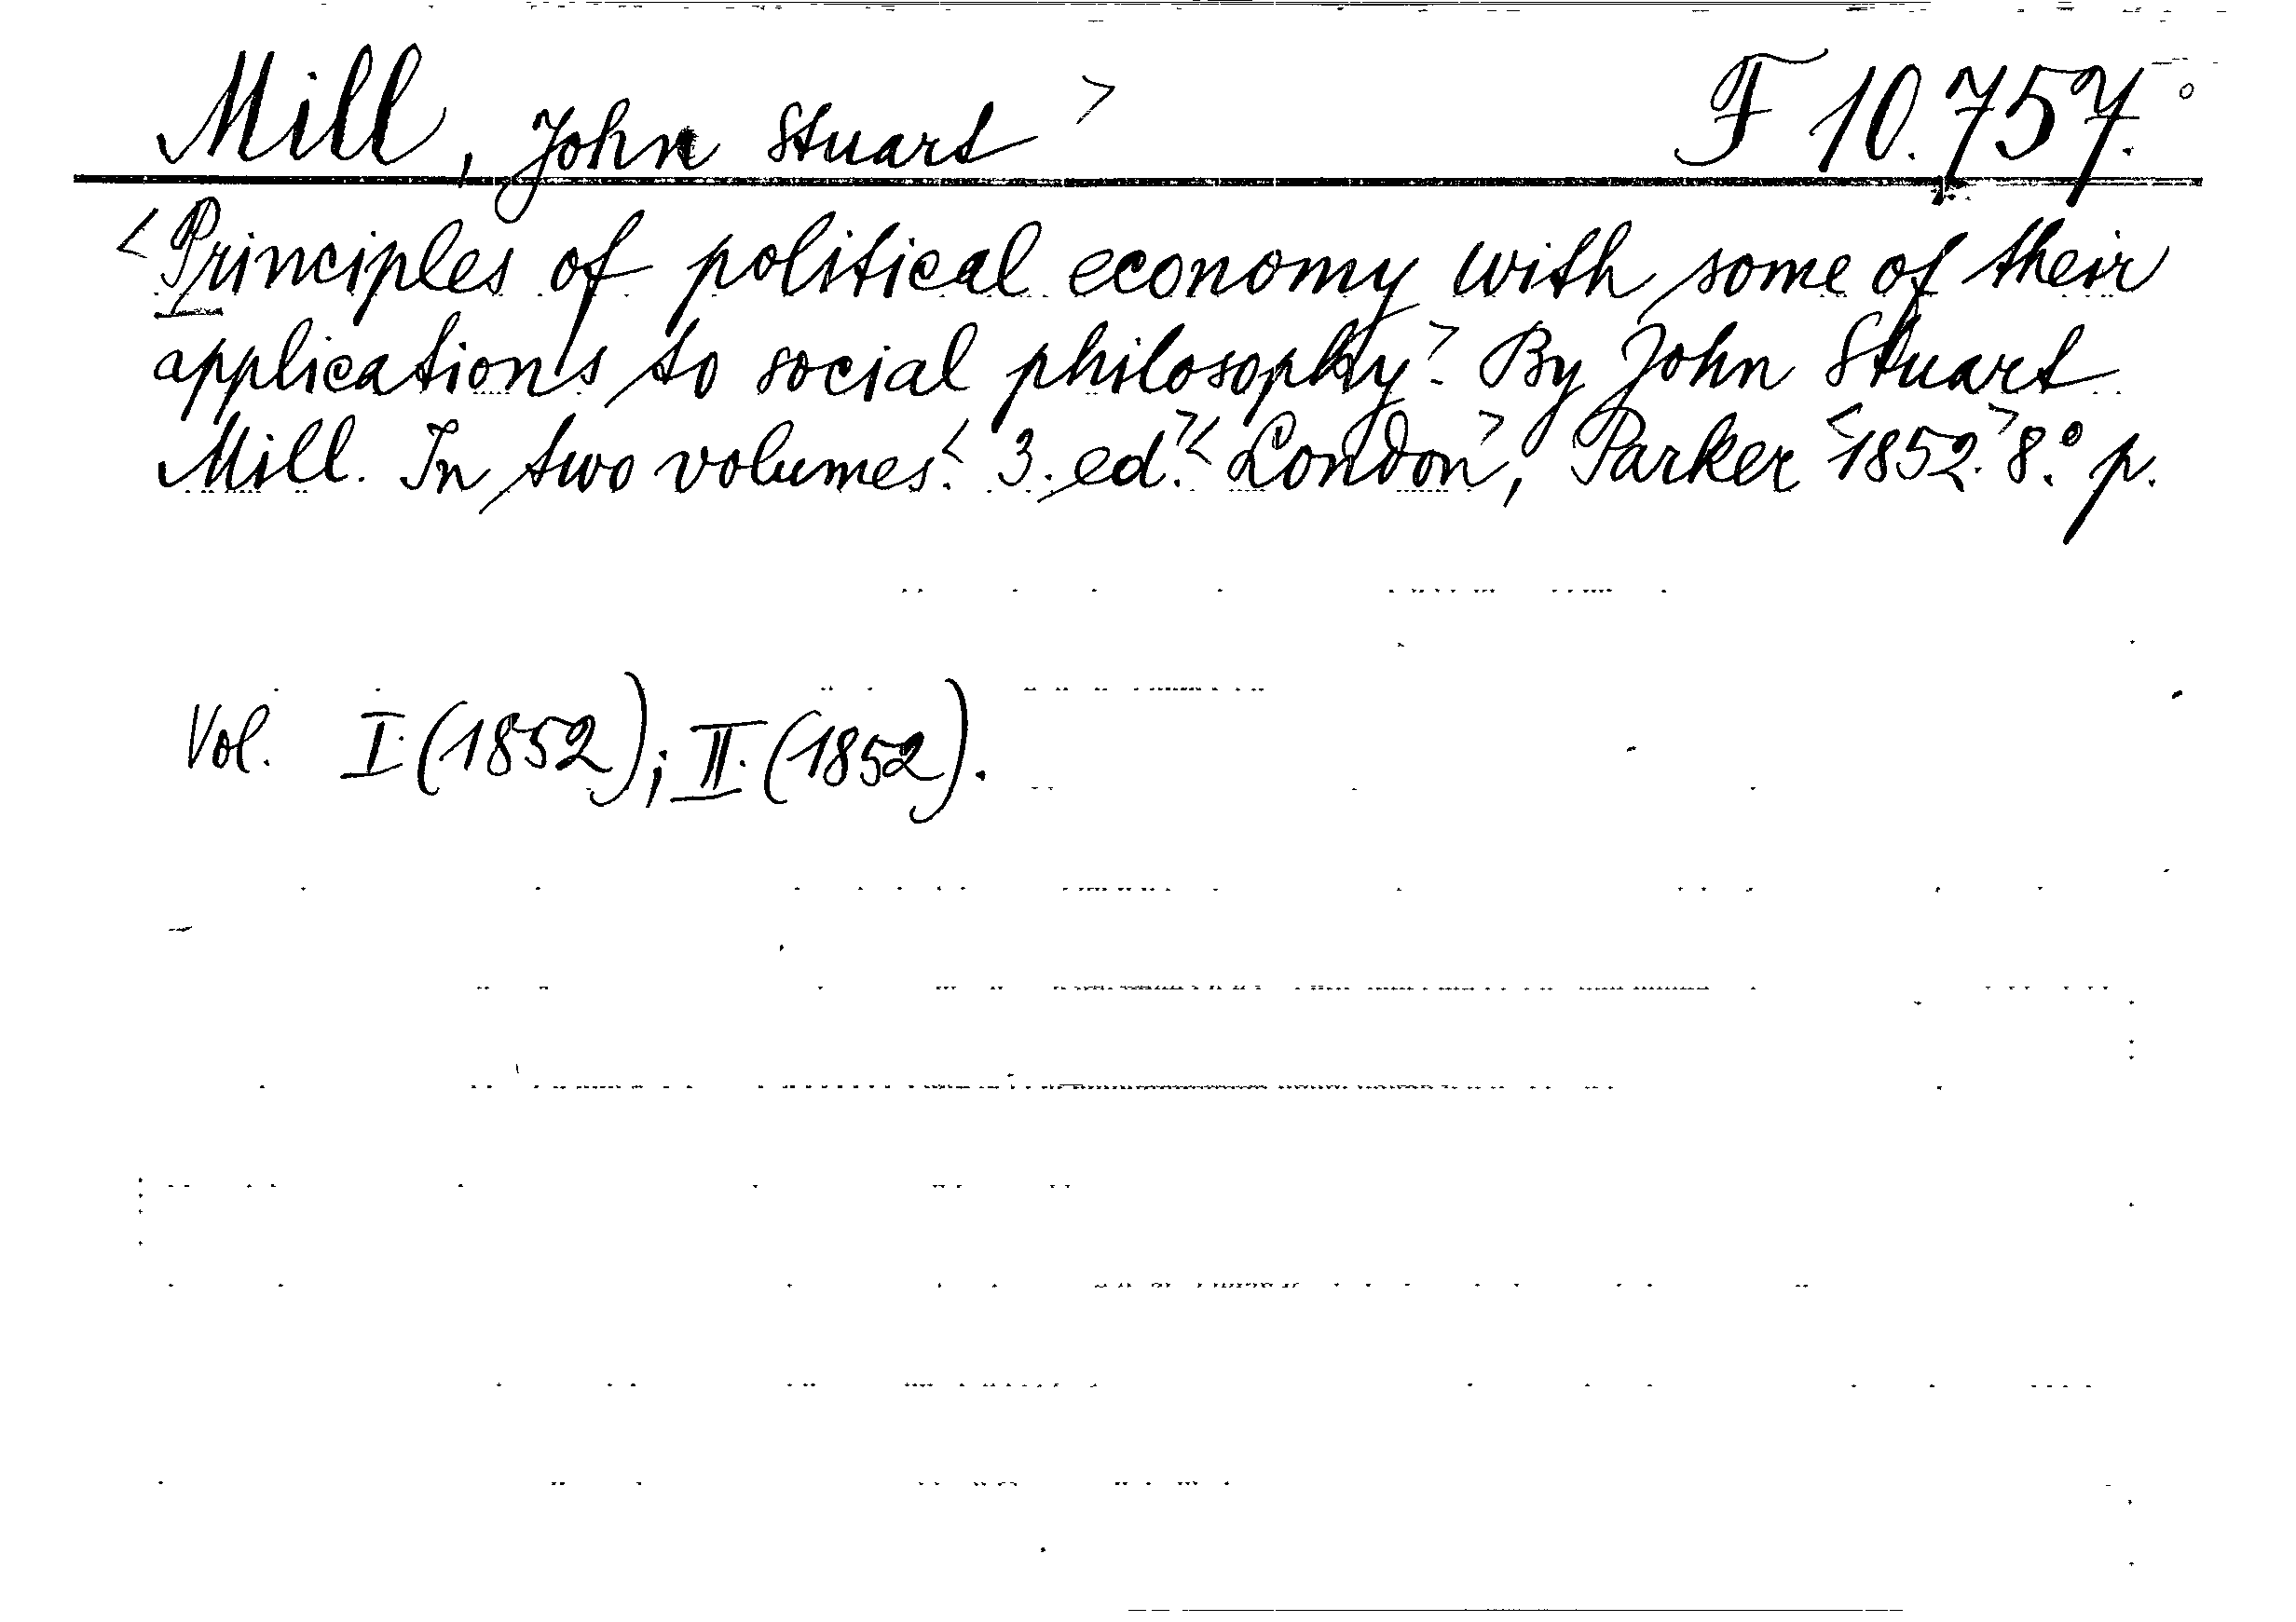 Mill, John Stuart> F 10.757.°
<Principles of political economy with some of their
applications to social philosophy>. By John Stuart
Mill. In two volumes.< 3. ed.>< London>, Parker <1852.> 8.° p.
Vol. I. (1852); II. (1852).